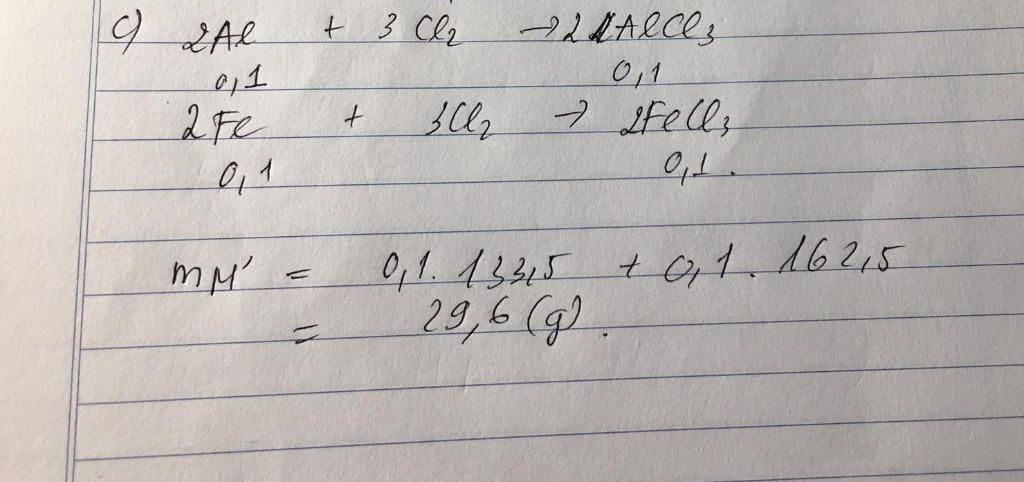 c) 2Al + 3Cl₂ → 2AlCl₃
0,1 0,1
2Fe + 3Cl₂ → 2FeCl₃
0,1 0,1.
mM' = 0,1. 133,5 + 0,1. 162,5
= 29,6 (g).